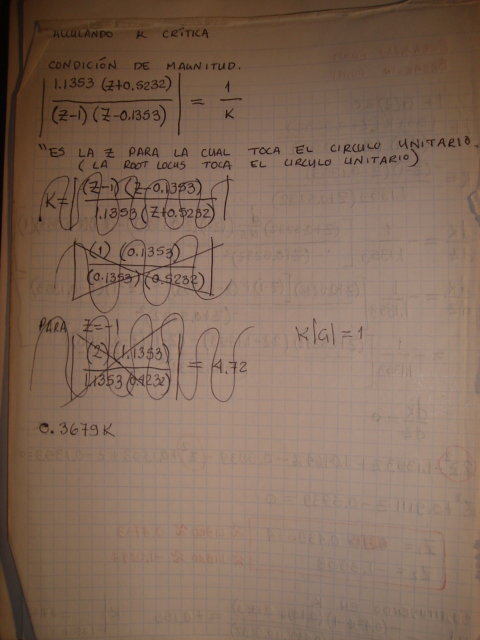 CALCULANDO K CRÍTICA
CONDICIÓN DE MAGNITUD.
| 1.1353 (z+0.5232) / (z-1) (z-0.1353) | = 1/K
"ES LA Z PARA LA CUAL TOCA EL CIRCULO UNITARIO.
(LA ROOT LOCUS TOCA EL CIRCULO UNITARIO)
K = | (z-1) (z-0.1353) / 1.1353 (z+0.5232) |
| (1) (0.1353) / (0.1353) (0.5232) |
PARA z=-1
| (2) (1.1353) / 1.1353 (0.4232) | = 4.72
K|G|=1
0.3679K